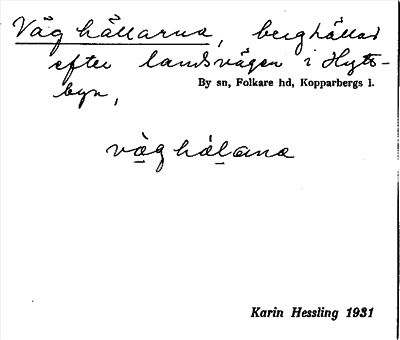 Väghällarna, berghällar
efter landsvägen i Hytt-
byn,
By sn, Folkare hd, Kopparbergs l.
vàghálana
Karin Hessling 1931